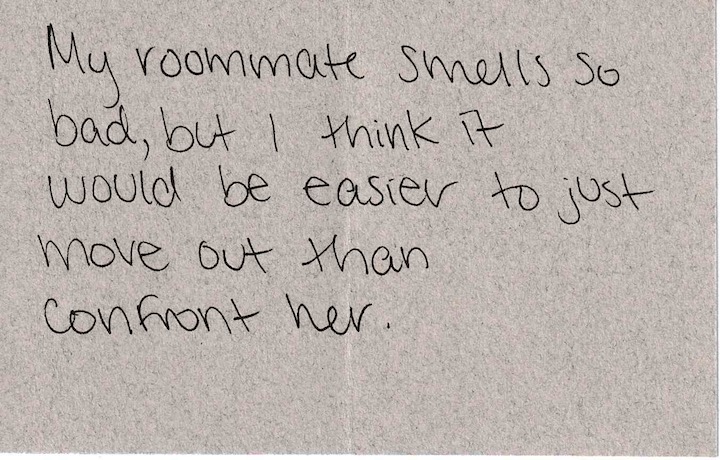 My roommate smells so
bad, but I think it
would be easier to just
move out than
confront her.